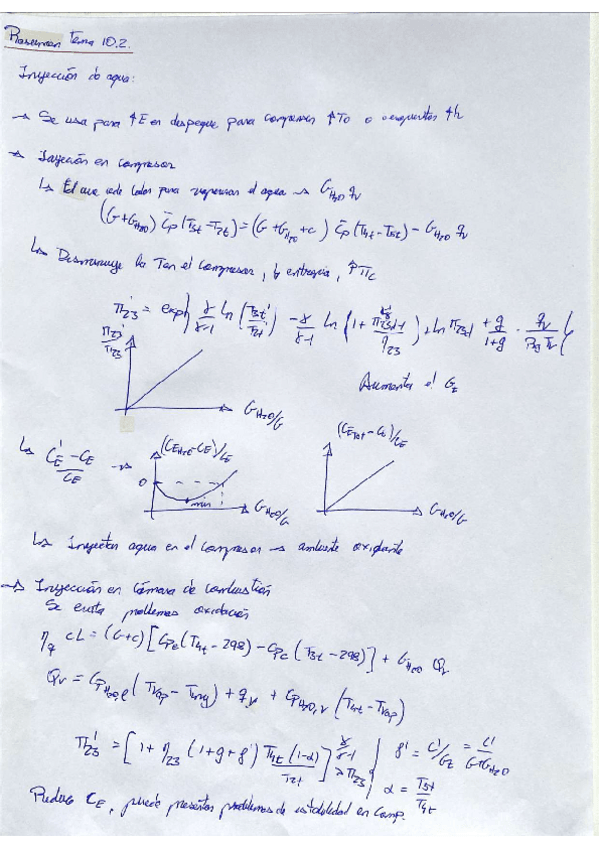 Resumen Tema 10.2.
Inyección de agua:
→ Se usa para ↑E en despegue para compensar ↑T0 o aeropuertos ↑h
→ Inyección en compresor
↳ El aire cede calor para vaporizar el agua → G_H2O q_v
(G+G_H2O) C̄p (T3t−T2t) = (G+G_H2O+c) C̄p (T4t−T5t) − G_H2O q_v
↳ Disminuye la T en el compresor, ↓ entropía, ↑π_c
π'23 = exp{ γ/γ-1 ln (T3t'/T2t) − γ/γ-1 ln (1 +
π'23/π23
G_H2O/G
Aumenta el G_E
↳ C'_E − C_E / C_E →
(C_EH2O − C_E)/C_E
0
min
G_H2O/G
− C_E)/C_E
G_H2O/G
↳ Inyectar agua en el compresor → ambiente oxidante
→ Inyección en cámara de combustión
Se evita problemas oxidación
η_q cL = (G+c) [C_pe (T4t − 298) − C_pc (T3t − 298)] + G_H2O Q_v
Q_v = C_pH2O,l (T_vap − T_iny) + q_v + C_pH2O,v (T4t − T_vap)
π'23 = [1 + η23 (1+g+f') T4t/T2t (1−α)]^γ/γ-1 > π23
f' = c'/G_E = c'/G+G_H2O
α = T5t/T4t
C_E, puede presentar problemas de estabilidad en comp.